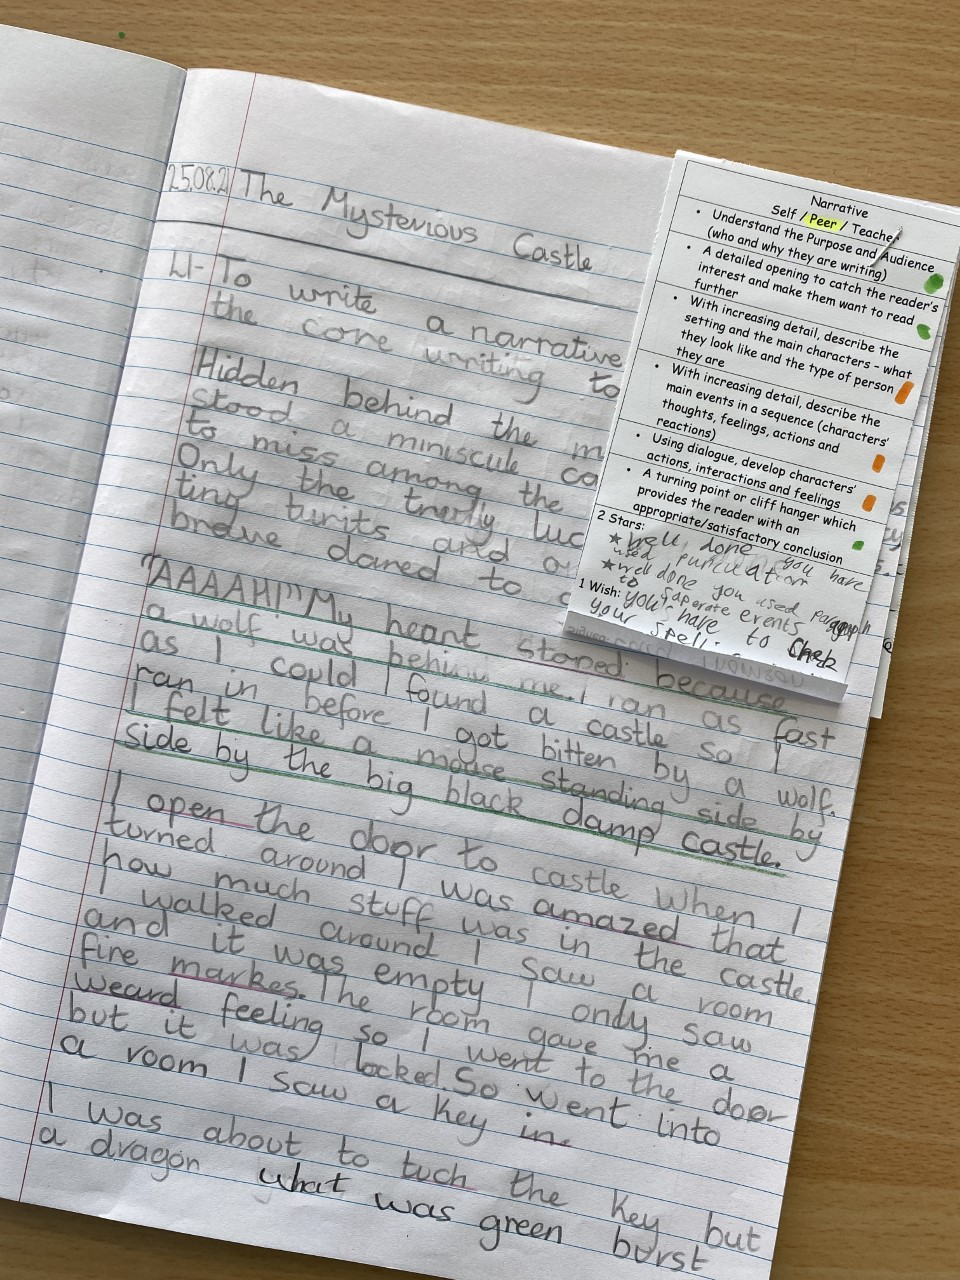 25.08.2
The Mysterious Castle
LI- To write a narrative
the core writing to
Hidden behind the m
stood a miniscule ca
to miss among the
Only the truely luc
ting
brave dared to
"AAAAH!" My heart stoped because
a wolf was behind me. I ran as fast
as I could I found a castle so I
ran in before I got bitten by a wolf.
I felt like a mouse standing side by
side by the big black damp castle.
I open the door to castle when I
turned around I was amazed that
how much stuff was in the castle.
I walked around I saw a room
and it was empty I ondy saw
fire markes. The room gave me a
weard feeling so I went to the door
but it was locked. So went into
a room I saw a key in.
I was about to tuch the key but
a dragon what was green burst
Narrative
Self / Peer / Teacher
• Understand the Purpose and Audience
(who and why they are writing)
• A detailed opening to catch the reader's
interest and make them want to read
further
• With increasing detail, describe the
setting and the main characters – what
they look like and the type of person
they are
• With increasing detail, describe the
main events in a sequence (characters'
thoughts, feelings, actions and
reactions)
• Using dialogue, develop characters'
actions, interactions and feelings
• A turning point or cliff hanger which
provides the reader with an
appropriate/satisfactory conclusion
2 Stars:
★ well done you have
used
★ well done you used
to saperate events
1 Wish: you have to check
your